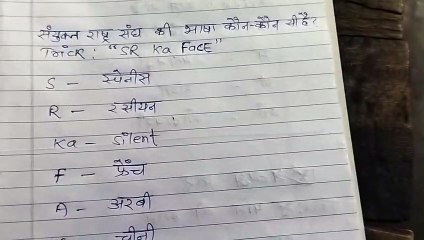 संयुक्त राष्ट्र संघ की भाषा कौन-कौन सी है?
Trick: "SR Ka FACE"
S - स्पेनीस
R - रसीयन
Ka - silent
F - फ्रैंच
A - अरबी
चीनी